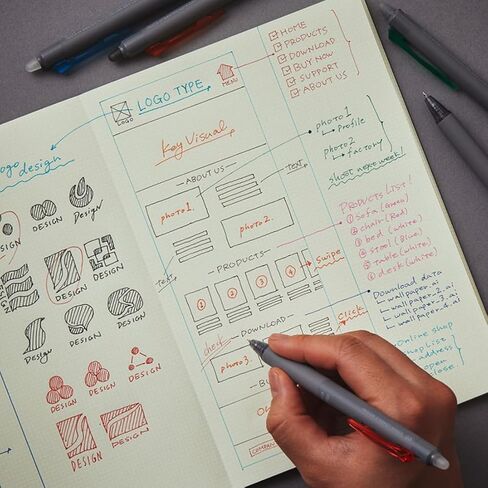 logo design
DESIGN
DESIGN
Design
DESIGN
DESIGN
DESIGN
Design
DESIGN
DESIGN
DESIGN
DESIGN
DESIGN
DESIGN
DESIGN
LOGO
LOGO TYPE
MENU
Key Visual
ABOUT US
photo1.
TEXT
photo2.
TEXT
PRODUCTS
1
2
3
4
Swipe
DOWNLOAD
check
Click
photo3.
COMPANY
HOME
PRODUCTS
DOWNLOAD
BUY NOW
SUPPORT
ABOUT US
photo1
Profile
photo2
factory
shoot next week!
PRODUCTS LIST!
① sofa (Green)
② chair (Red)
③ bed (white)
④ stool (Blue)
⑤ table (white)
⑥ desk (white)
Download data
wallpaper.ai
wallpaper.2.ai
wallpaper.3.ai
wallpaper.4.ai
Online shop
Shop List
address
open
close